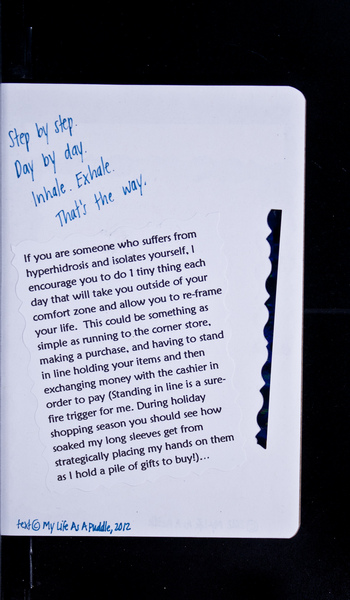 Step by step.
Day by day.
Inhale. Exhale.
That's the way.
If you are someone who suffers from
hyperhidrosis and isolates yourself, I
encourage you to do 1 tiny thing each
day that will take you outside of your
comfort zone and allow you to re-frame
your life. This could be something as
simple as running to the corner store,
making a purchase, and having to stand
in line holding your items and then
exchanging money with the cashier in
order to pay (Standing in line is a sure-
fire trigger for me. During holiday
shopping season you should see how
soaked my long sleeves get from
strategically placing my hands on them
as I hold a pile of gifts to buy!)...
text © My Life As A Puddle, 2012